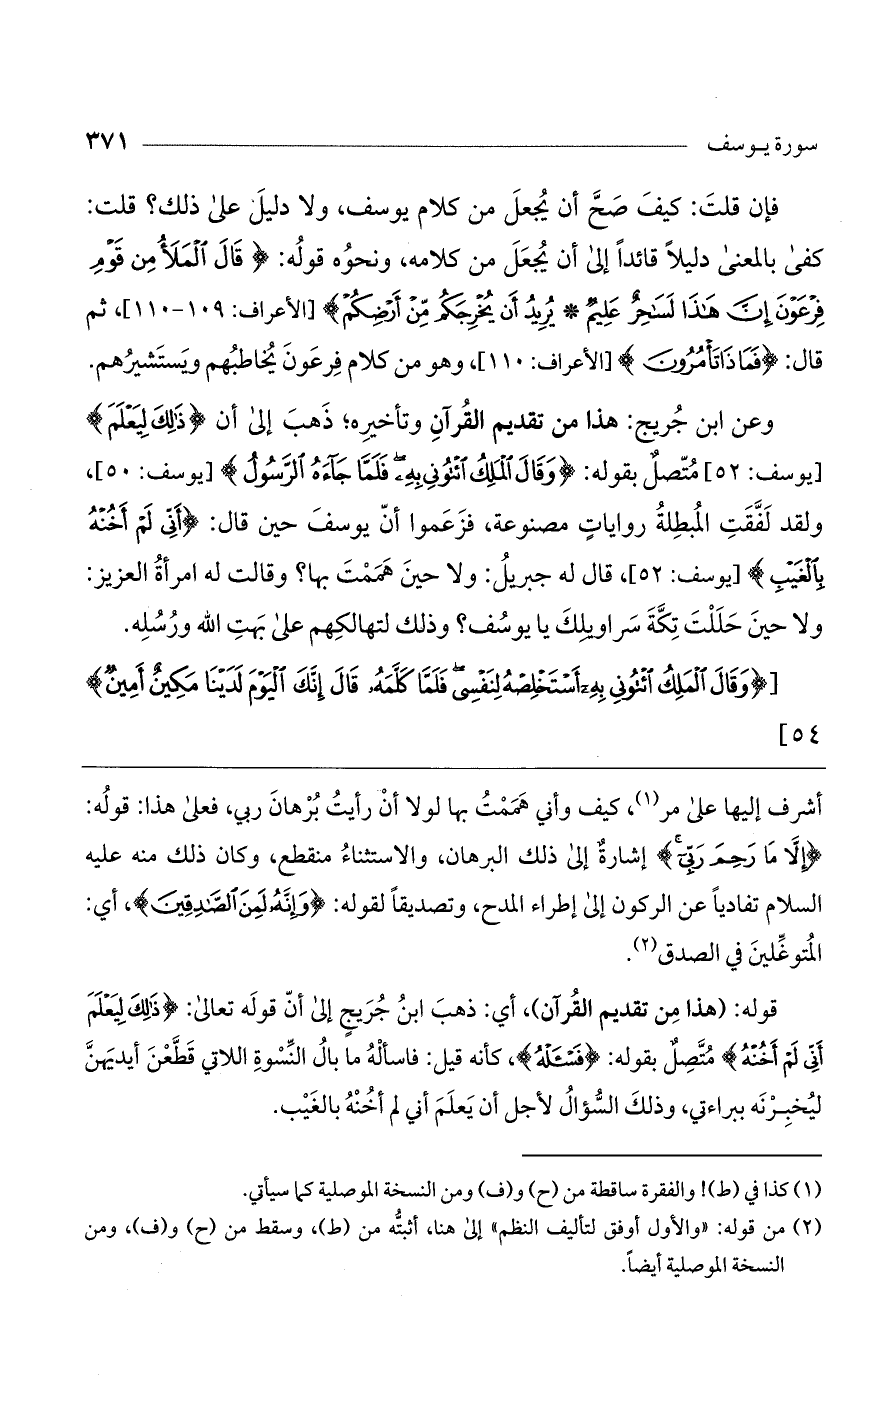 سورة يـوسف ٣٧١
فإن قلتَ: كيفَ صَحَّ أن يُجعلَ من كلام يوسف، ولا دليلَ علىٰ ذلك؟ قلت:
كفىٰ بالمعنىٰ دليلاً قائداً إلىٰ أن يُجعَلَ من كلامه، ونحوُه قولُه: ﴿قَالَ ٱلْمَلَأُ مِن قَوْمِ
فِرْعَوْنَ إِنَّ هَٰذَا لَسَٰحِرٌ عَلِيمٌ * يُرِيدُ أَن يُخْرِجَكُم مِّنْ أَرْضِكُمْ﴾ [الأعراف: ١٠٩-١١٠]، ثم
قال: ﴿فَمَاذَا تَأْمُرُونَ﴾ [الأعراف: ١١٠]، وهو من كلام فِرعَونَ يُخاطبُهم ويَستَشيرُهم.
وعن ابن جُريج: هذا من تقديم القُرآنِ وتأخيرِه؛ ذَهبَ إلىٰ أن ﴿ذَٰلِكَ لِيَعْلَمَ﴾
[يوسف: ٥٢] مُتّصلٌ بقوله: ﴿وَقَالَ ٱلْمَلِكُ ٱئْتُونِى بِهِۦ فَلَمَّا جَآءَهُ ٱلرَّسُولُ﴾ [يوسف: ٥٠]،
ولقد لَفَّقَتِ المُبطِلةُ رواياتٍ مصنوعة، فزَعَموا أنّ يوسفَ حين قال: ﴿أَنِّى لَمْ أَخُنْهُ
بِٱلْغَيْبِ﴾ [يوسف: ٥٢]، قال له جبريلُ: ولا حينَ هَمَمْتَ بها؟ وقالت له امرأةُ العزيز:
ولا حينَ حَلَلْتَ تِكَّةَ سَراويلِكَ يا يوسُف؟ وذلك لتهالكِهم علىٰ بَهتِ الله ورُسُلِه.
[﴿وَقَالَ ٱلْمَلِكُ ٱئْتُونِى بِهِۦٓ أَسْتَخْلِصْهُ لِنَفْسِى فَلَمَّا كَلَّمَهُۥ قَالَ إِنَّكَ ٱلْيَوْمَ لَدَيْنَا مَكِينٌ أَمِينٌ﴾
٥٤]
أشرف إليها علىٰ مر(١)، كيف وأني هَمَمْتُ بها لولا أنْ رأيتُ بُرْهانَ ربي، فعلىٰ هذا: قولُه:
﴿إِلَّا مَا رَحِمَ رَبِّىٓ﴾ إشارةٌ إلىٰ ذلك البرهان، والاستثناءُ منقطع، وكان ذلك منه عليه
السلام تفادياً عن الركون إلىٰ إطراء المدح، وتصديقاً لقوله: ﴿وَإِنَّهُۥ لَمِنَ ٱلصَّٰدِقِينَ﴾، أي:
المُتوغِّلينَ في الصدق(٢).
قوله: (هذا مِن تقديم القُرآن)، أي: ذهبَ ابنُ جُرَيجٍ إلىٰ أنّ قولَه تعالىٰ: ﴿ذَٰلِكَ لِيَعْلَمَ
أَنِّى لَمْ أَخُنْهُ﴾ مُتَّصِلٌ بقوله: ﴿فَسْـَٔلْهُ﴾، كأنه قيل: فاسألْهُ ما بالُ النِّسْوةِ اللاتي قَطَّعْنَ أيديَهنَّ
ليُخبِرْنَه ببراءتي، وذلكَ السُّؤالُ لأجل أن يَعلَمَ أني لم أخُنْهُ بالغَيْب.
(١) كذا في (ط)! والفقرة ساقطة من (ح) و(ف) ومن النسخة الموصلية كما سيأتي.
(٢) من قوله: «والأول أوفق لتأليف النظم» إلىٰ هنا، أثبتُّه من (ط)، وسقط من (ح) و(ف)، ومن
النسخة الموصلية أيضاً.